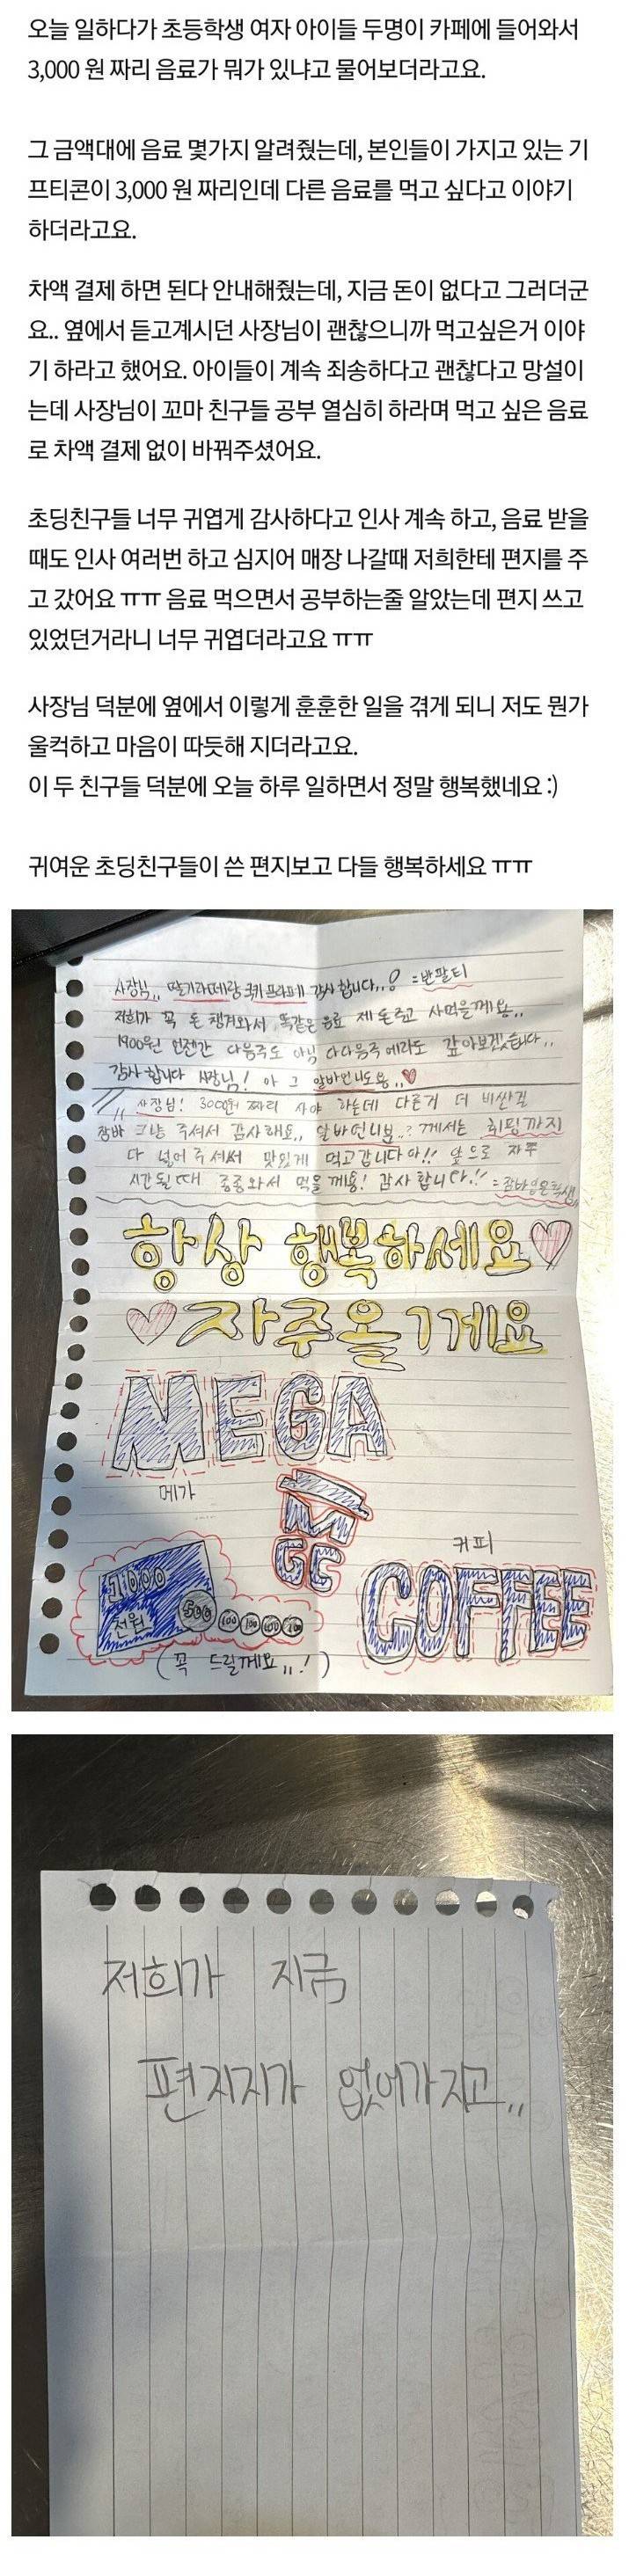 오늘 일하다가 초등학생 여자 아이들 두명이 카페에 들어와서
3,000 원 짜리 음료가 뭐가 있냐고 물어보더라고요.
그 금액대에 음료 몇가지 알려줬는데, 본인들이 가지고 있는 기
프티콘이 3,000 원 짜리인데 다른 음료를 먹고 싶다고 이야기
하더라고요.
차액 결제 하면 된다 안내해줬는데, 지금 돈이 없다고 그러더군
요.. 옆에서 듣고계시던 사장님이 괜찮으니까 먹고싶은거 이야
기 하라고 했어요. 아이들이 계속 죄송하다고 괜찮다고 망설이
는데 사장님이 꼬마 친구들 공부 열심히 하라며 먹고 싶은 음료
로 차액 결제 없이 바꿔주셨어요.
초딩친구들 너무 귀엽게 감사하다고 인사 계속 하고, 음료 받을
때도 인사 여러번 하고 심지어 매장 나갈때 저희한테 편지를 주
고 갔어요 ㅠㅠ 음료 먹으면서 공부하는줄 알았는데 편지 쓰고
있었던거라니 너무 귀엽더라고요 ㅠㅠ
사장님 덕분에 옆에서 이렇게 훈훈한 일을 겪게 되니 저도 뭔가
울컥하고 마음이 따듯해 지더라고요.
이 두 친구들 덕분에 오늘 하루 일하면서 정말 행복했네요 :)
귀여운 초딩친구들이 쓴 편지보고 다들 행복하세요 ㅠㅠ
사장님,, 딸기라떼랑 쿠키프라페 감사합니다..! =반팔티
저희가 꼭 돈 챙겨와서 똑같은 음료 제 돈주고 사먹을께요..
1900원 언젠간 다음주도 아님 다다음주 에라도 갚아보겠습니다..
감사합니다 사장님! 아 그 알바언니도용..♥
사장님! 3000원 짜리 사야 하는데 다른거 더 비싼걸
그냥 주셔서 감사해요,, 알바언니분..? 께서는 휘핑까지
다 넣어주셔서 맛있게 먹고갑니다아!! 앞으로 자주
시간될때 종종와서 먹을께용! 감사합니다!! =잠바입은학생,,
항상 행복하세요♡
♡자주올게요
MEGA
메가
M
GC
커피
COFFEE
1000
천원
500 100 100 100 100
(꼭 드릴께요,,!)
저희가 지금
편지지가 없어가지고,,